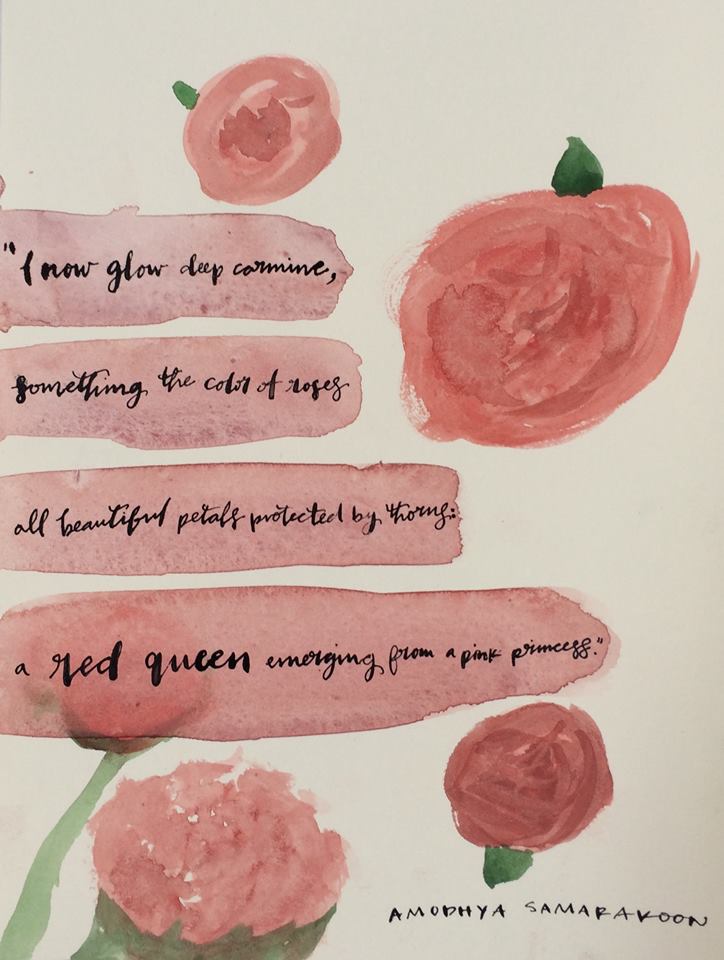 "I now glow deep carmine,
something the color of roses
all beautiful petals protected by thorns:
a red queen emerging from a pink princess."
AMODHYA SAMARAKOON